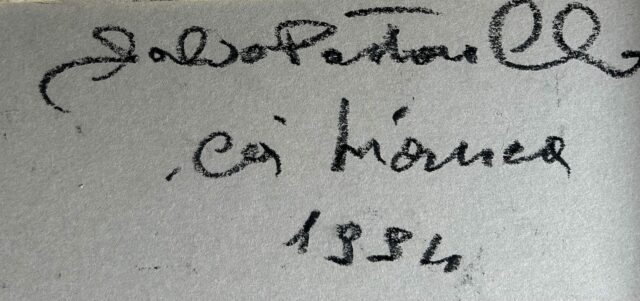 Salvo Pastorello
Cà bianca
1994